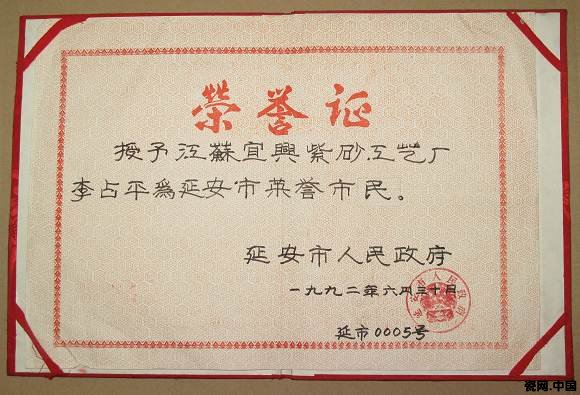 荣誉证
授予江蘇宜興紫砂工艺厂
李占平為延安市荣誉市民。
延安市人民政府
一九九二年六月三十日
延安市人民政府
延市0005号
瓷网.中国